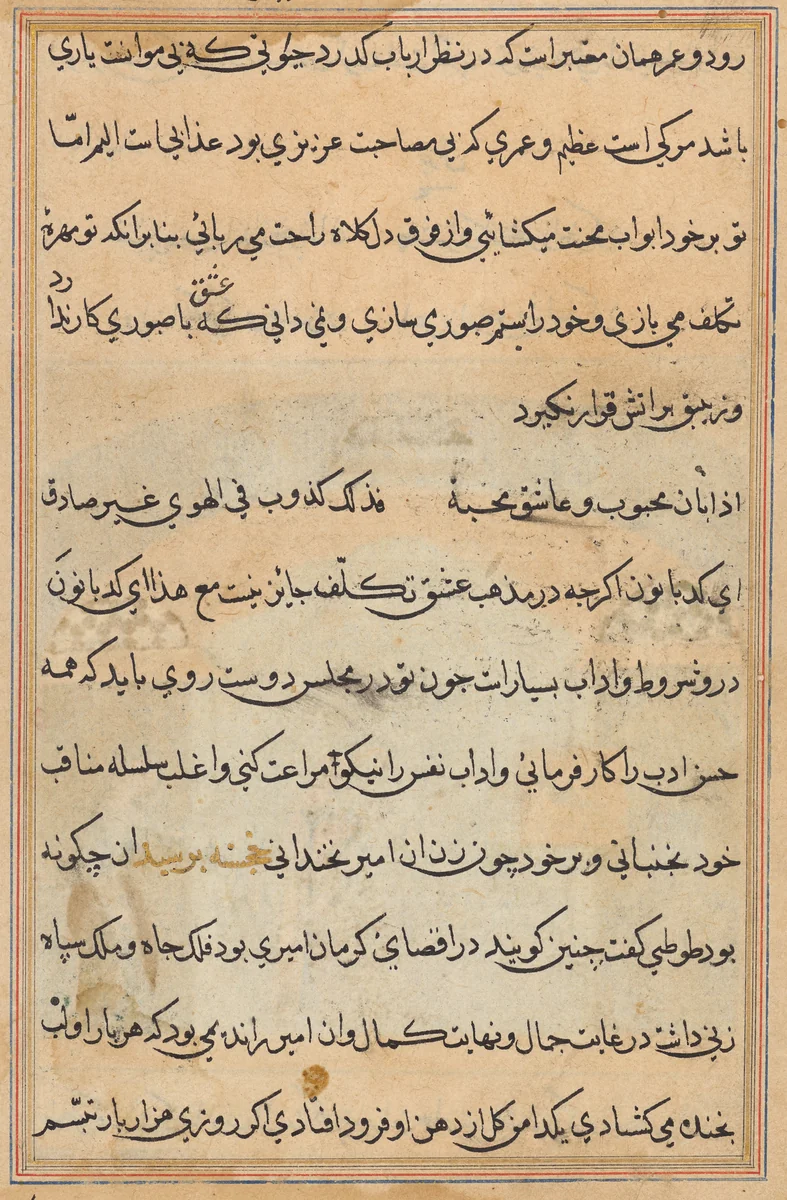 رود و عمر همان معتبر است که در نظر ارباب کدرد حیوتی که بی موانست یاری
باشد مرکی است عظیم و عمری که بی مصاحبت عزیزی بود عذابی است الیم امّا
تو بر خود ابواب محنت میکشایی و از فرق دل کلاه راحت می ربائی بنا برانکه تو مهرهٔ
تکلف می بازی و خود را رستم صبوری سازی و نمی دانی که عشق با صبوری کار ندارد
و زیبق بر اتش قرار نکیرد
اذا بان محبوب و عاشق محبة فذلک کذوب فی الهوی غیر صادق
ای کدبانون اکرچه در مذهب عشق تکلّف جائز نیست مع هذا ای کدبانون
درو شروط و اداب بسیار است جون تو در مجلس دوست روی باید که همه
حسن ادب را کار فرمائی و اداب نفس را نیکو مراعت کنی و اغلب سلسله مناقب
خود بجنبانی و بر خود چون زن ان امیر نخندانی خجسته پرسید ان چکونه
بود طوطی کفت چنین کویند در اقصای کرمان امیری بود فلک جاه و ملک سپاه
زنی داشت در غایت جمال و نهایت کمال و ان امیر را ندیمی بود که هر بار او لب
بخنده می کشادی یکدامن کل از دهن او فرود افتادی اکر روزی هزار بار تبسّم